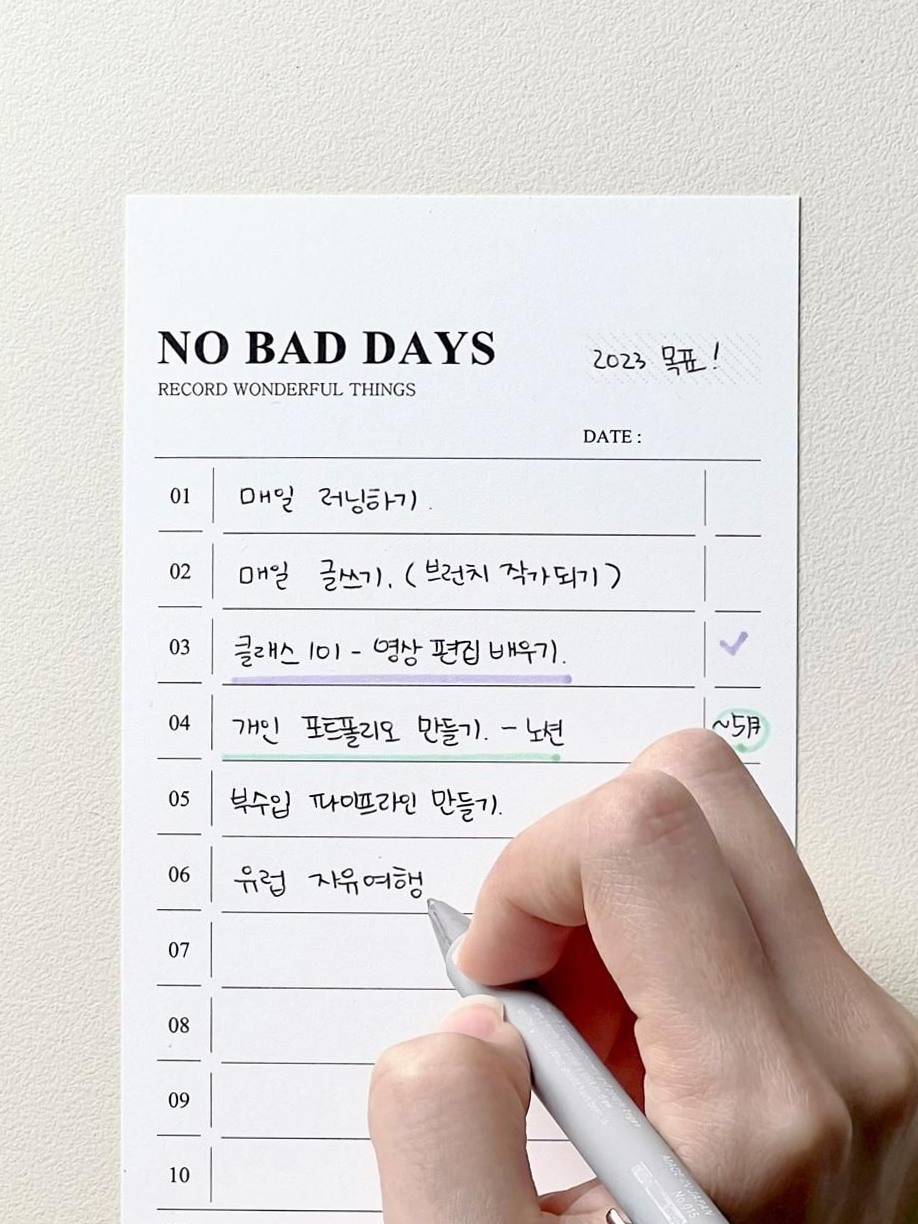 NO BAD DAYS
2023 목표!
RECORD WONDERFUL THINGS
DATE :
01 매일 러닝하기.
02 매일 글쓰기. (브런치 작가되기)
03 클래스 101 - 영상 편집 배우기. ✓
04 개인 포트폴리오 만들기. - 노션 ~5月
05 부수입 파이프라인 만들기.
06 유럽 자유여행
07
08
09
10